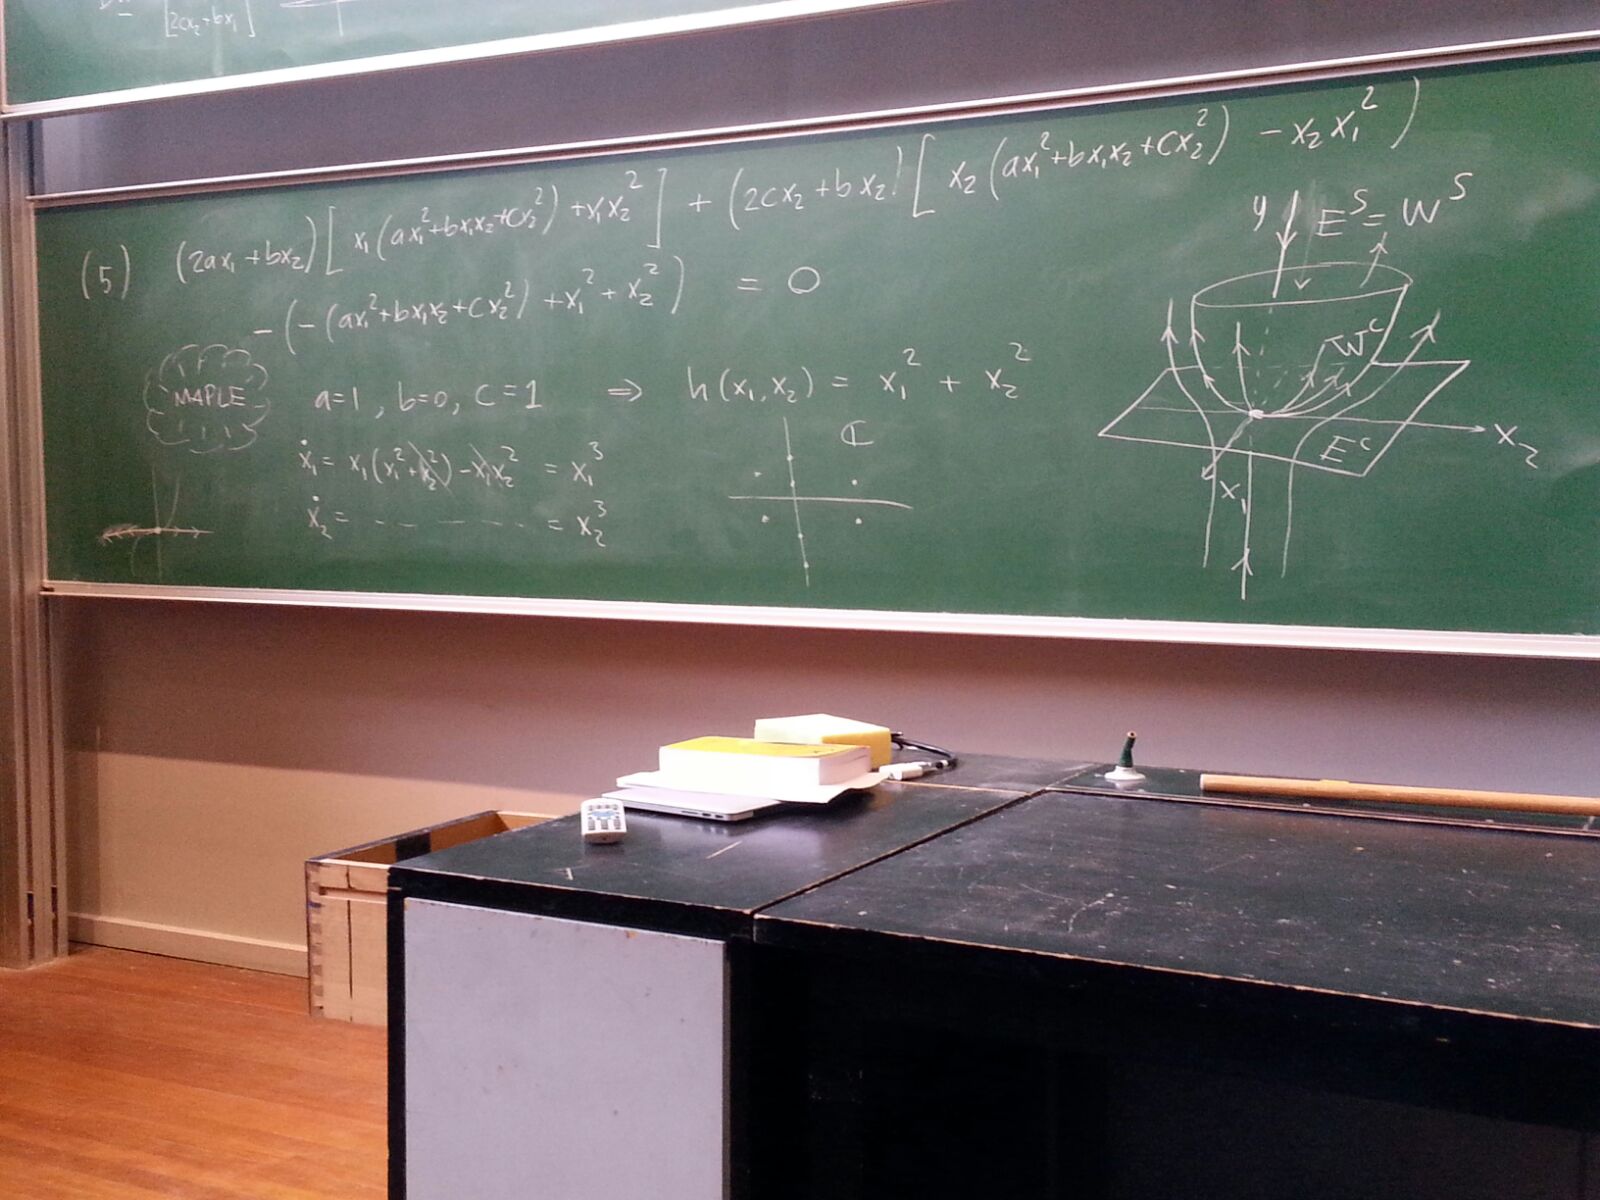 [2cx₂+bx₁]
(5) (2ax₁+bx₂)[x₁(ax₁²+bx₁x₂+cx₂²)+x₁x₂²] + (2cx₂+bx₂)[x₂(ax₁²+bx₁x₂+cx₂²) -x₂x₁²)
-(-(ax₁²+bx₁x₂+cx₂²)+x₁²+x₂²) = 0
MAPLE
a=1, b=0, c=1 ⇒ h(x₁,x₂) = x₁² + x₂²
ẋ₁= x₁(x₁²+x₂²)-x₁x₂² = x₁³
ẋ₂= - - - - - - = x₂³
ℂ
y
Eˢ=Wˢ
Wᶜ
x₂
Eᶜ
x₁